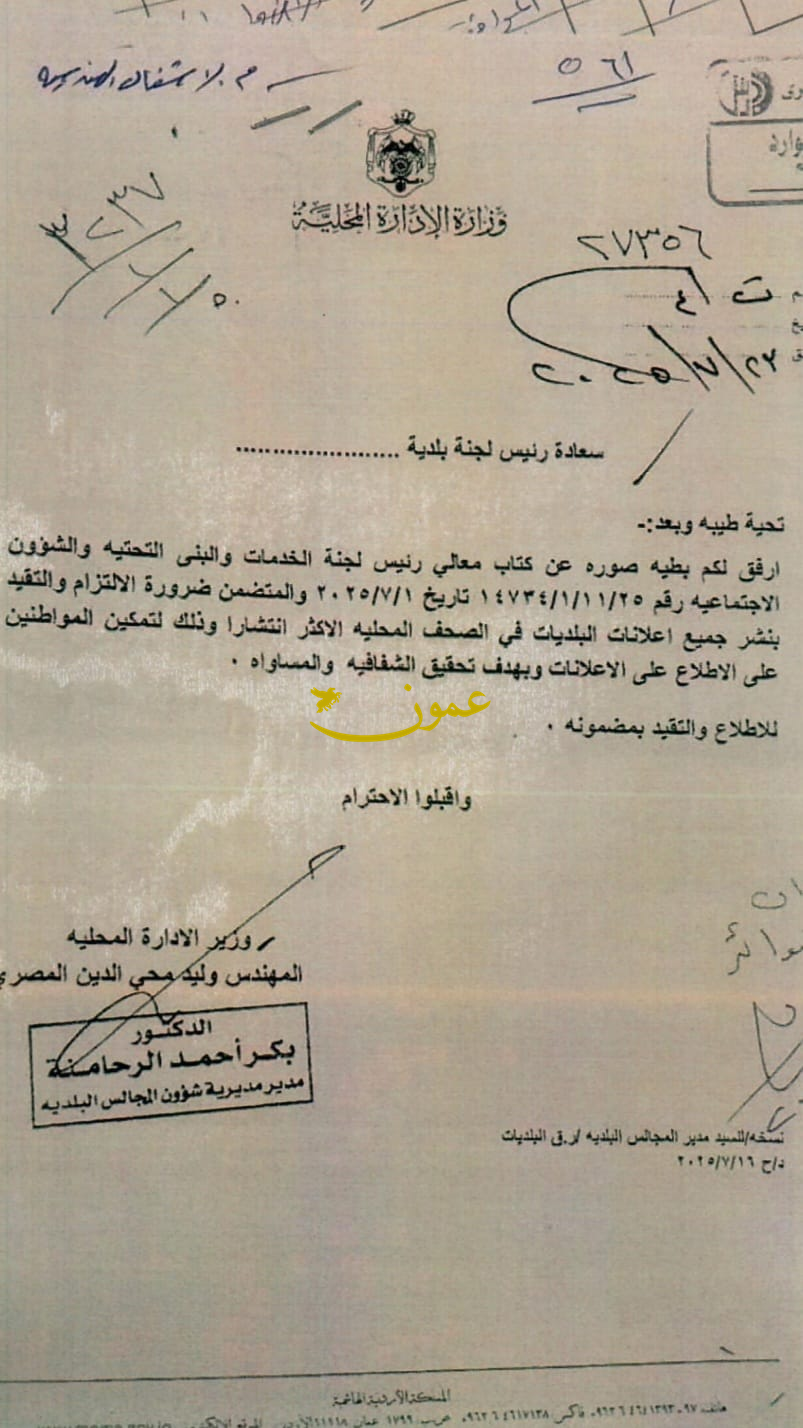 ٥٦١
م. الاشغال الهندسية
وزارة الإدارة المحلية
٢٧٣٥٦
٣٢٣٧
٢٠٢٥/٧/٢٣
سعادة رئيس لجنة بلدية ......................
تحية طيبه وبعد:-
ارفق لكم بطيه صوره عن كتاب معالي رئيس لجنة الخدمات والبنى التحتيه والشؤون
الاجتماعيه رقم ١٤٧٣٤/١/١١/٢٥ تاريخ ٢٠٢٥/٧/١ والمتضمن ضرورة الالتزام والتقيد
بنشر جميع اعلانات البلديات في الصحف المحليه الاكثر انتشارا وذلك لتمكين المواطنين
على الاطلاع على الاعلانات وبهدف تحقيق الشفافيه والمساواه ٠
عمون
للاطلاع والتقيد بمضمونه ٠
واقبلوا الاحترام
وزير الادارة المحليه
المهندس وليد محي الدين المصري
الدكتور
بكر أحمد الرحامنة
مدير مديرية شؤون المجالس البلديه
نسخه/للسيد مدير المجالس البلديه /ر.ق البلديات
د/ح ٢٠٢٥/٧/١٦
المملكة الأردنية الهاشمية